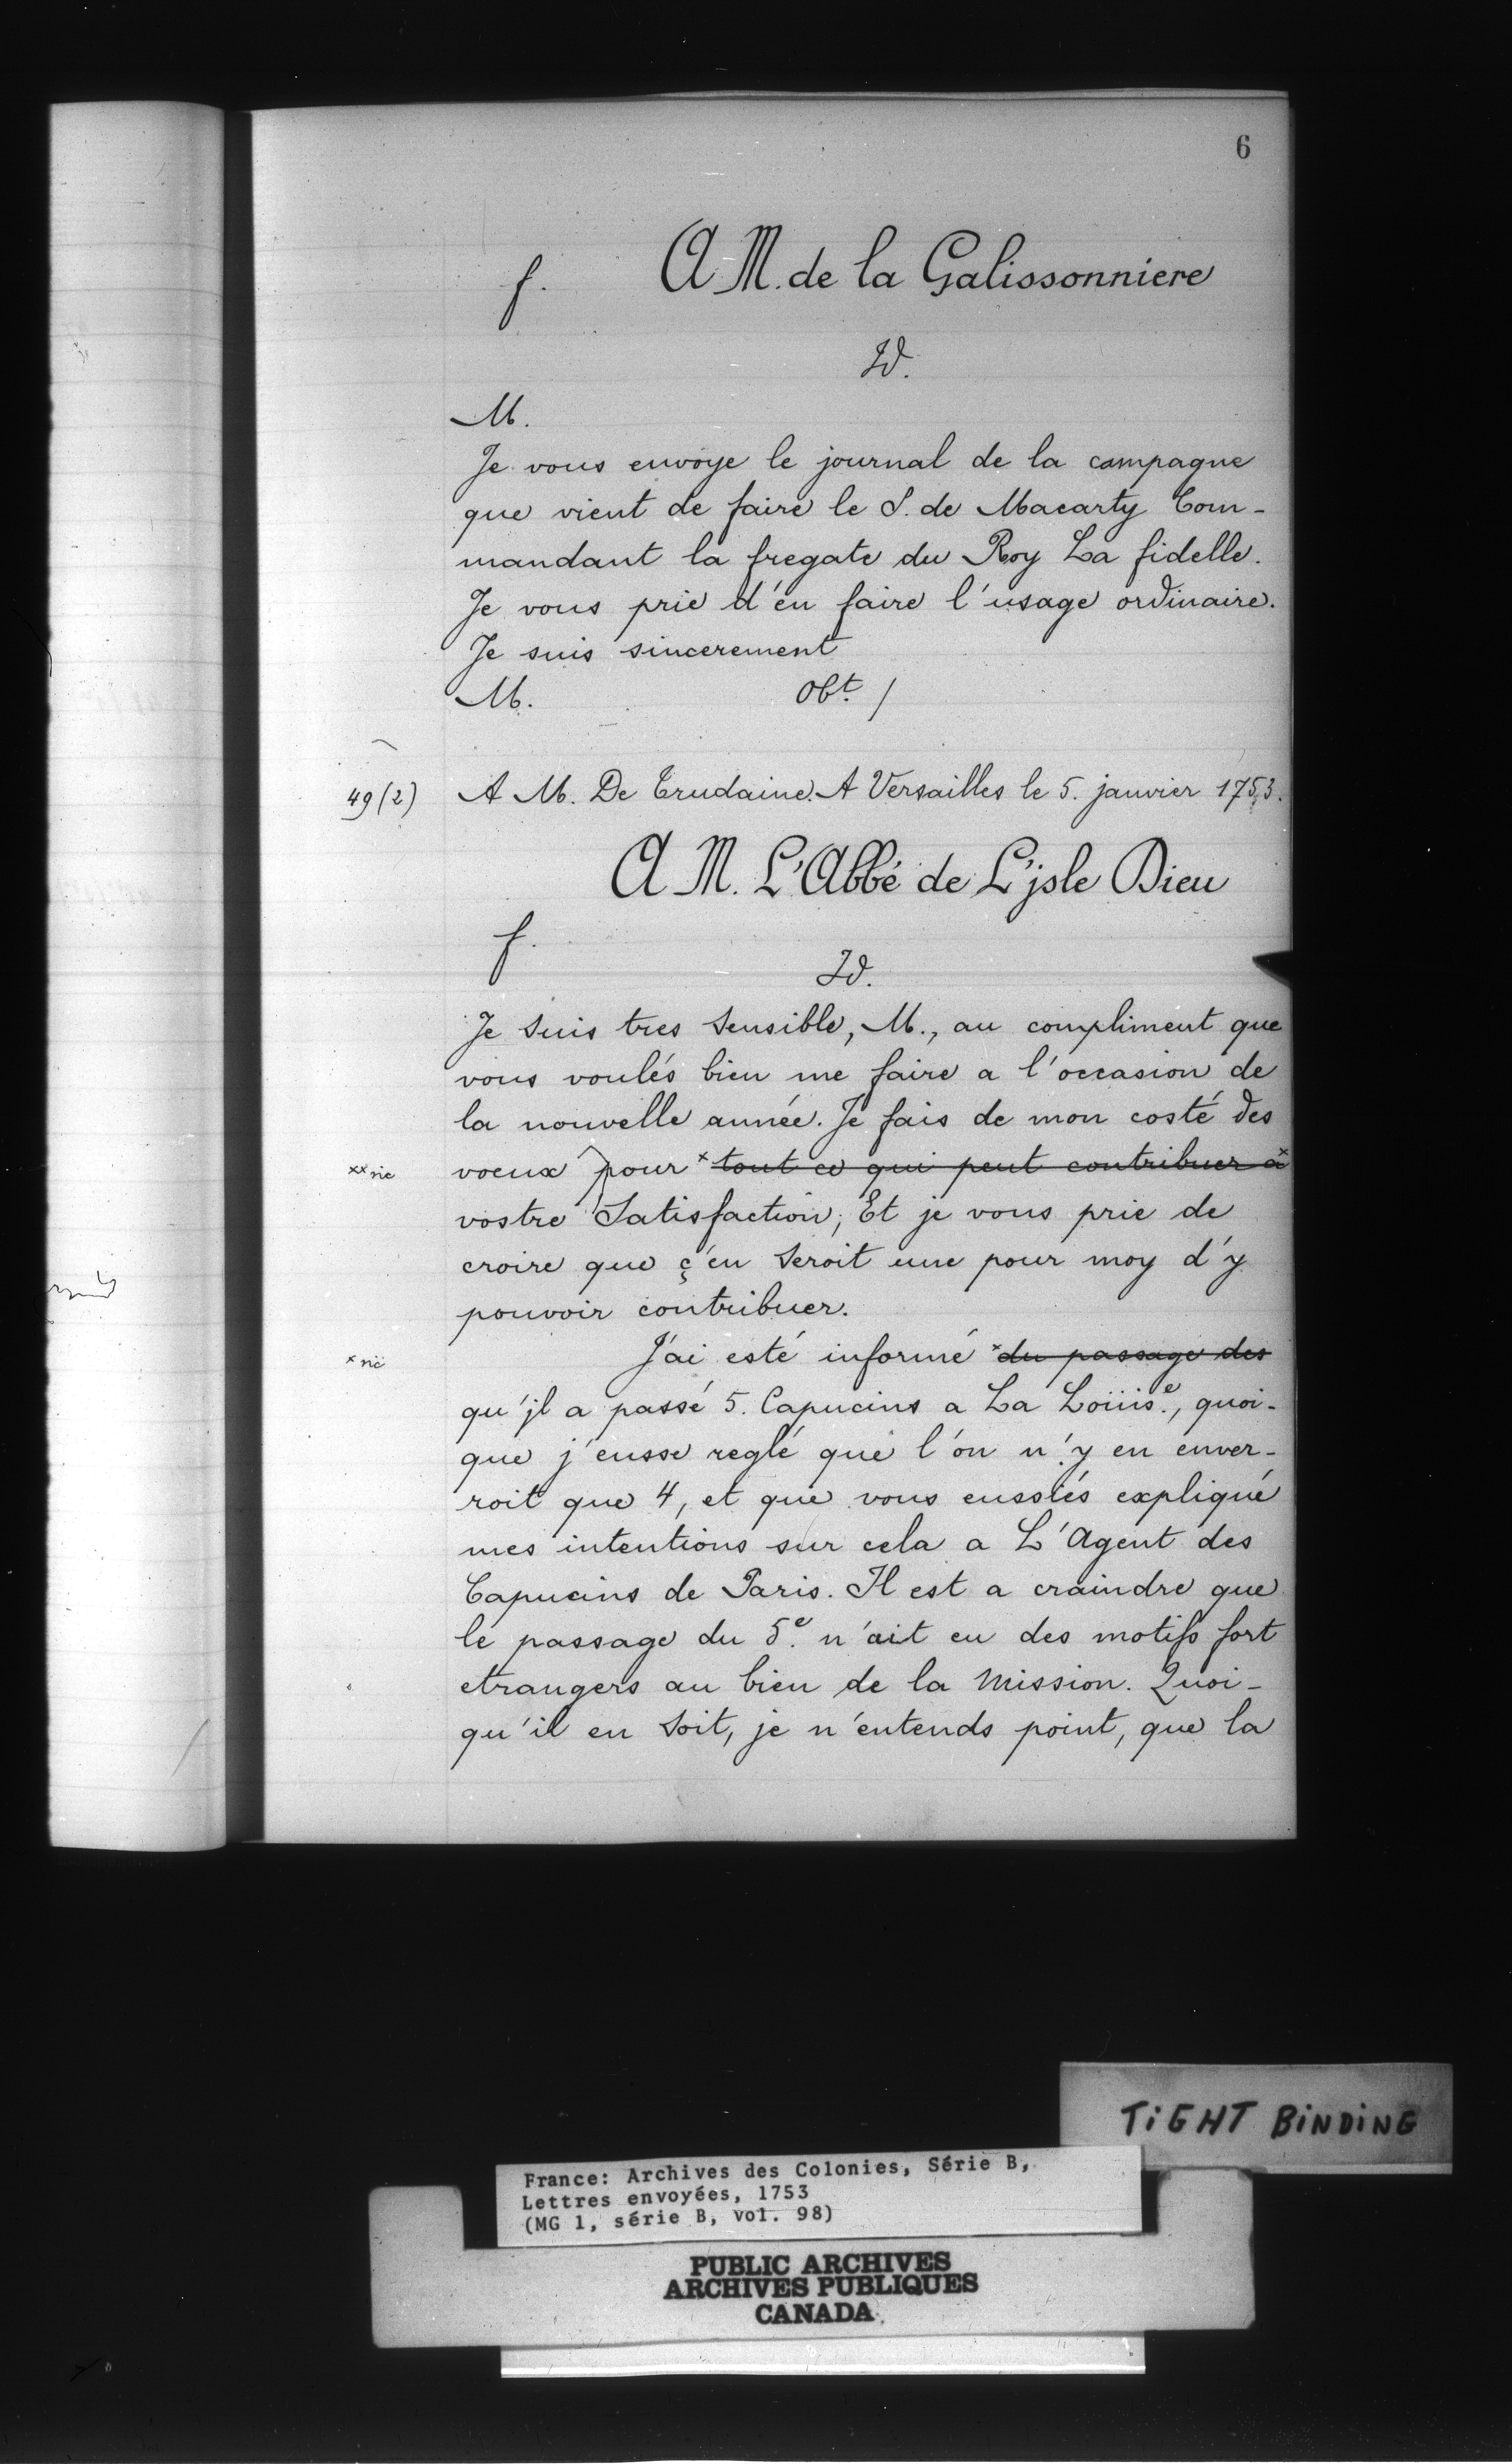 6
f. A M. de la Galissonniere
Id.
M.
Je vous envoye le journal de la campagne
que vient de faire le S. de Macarty Com-
mandant la fregate du Roy La fidelle.
Je vous prie d'en faire l'usage ordinaire.
Je suis sincerement
M. Obt. /
49 (2) A M. De Trudaine. A Versailles le 5. janvier 1753.
A M. L'Abbé de L'jsle Dieu
f.
Id.
Je suis tres sensible, M., au compliment que
vous voulés bien me faire a l'occasion de
la nouvelle année. Je fais de mon costé des
xx sic voeux pour x tout ce qui peut contribuer a x
vostre Satisfaction; Et je vous prie de
croire que ç'en seroit une pour moy d'y
pouvoir contribuer.
x sic J'ai esté informé x du passage des
qu'jl a passé 5. Capucins a La Loüis.e, quoi-
que j'eusse reglé que l'on n'y en enver-
roit que 4, et que vous eussiés expliqué
mes intentions sur cela a L'Agent des
Capucins de Paris. Il est a craindre que
le passage du 5.e n'ait eu des motifs fort
etrangers au bien de la Mission. Quoi-
qu'il en soit, je n'entends point, que la
TIGHT BINDING
France: Archives des Colonies, Série B,
Lettres envoyées, 1753
(MG 1, série B, vol. 98)
PUBLIC ARCHIVES
ARCHIVES PUBLIQUES
CANADA